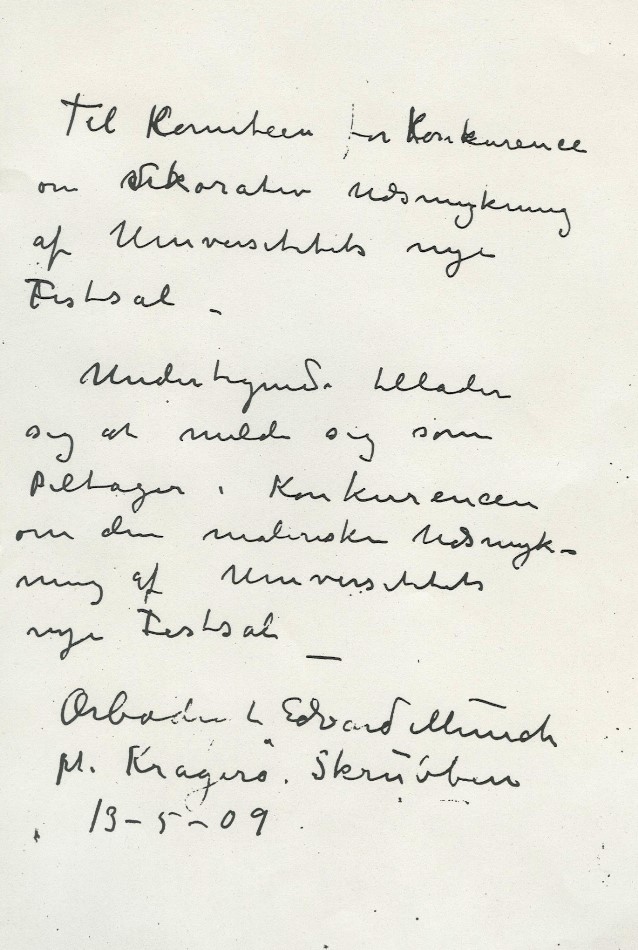 Til Komiteen for Konkurence
om dekorativ Udsmykning
af Universitetets nye
Festsal –
Undertegnede tillader
sig at melde sig som
Deltager i Konkurencen
om den maleriske Udsmyk-
ning af Universitetets
nye Festsal –
Ærbødigst Edvard Munch
pt. Kragerø. Skrubben
13-5-09